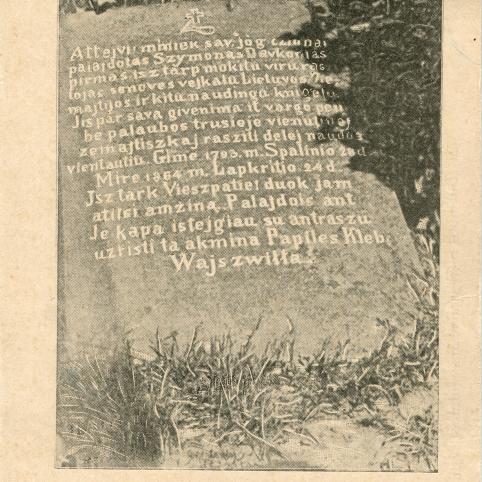 Attejvi minniek sav, jog czionai
palajdotas Szymonas Davkontas
pirmas isz tarp mokitu viru ras
tojas senoves vejkalu Lietuvos
majtijos ir kitu naudingu
Jis par sava givenima it vargo
be palaubos trusioje
zemajtiszkaj raszili delej
vientautiu. Gime 1793. m. Spalinio
Mire 1864 m. Lapkritio 24 d.
Jsztark Vieszpatie! duok jam
atilsi amžina. Palajdots ant
Je kapa isfejgiau su antraszu
uzristi ta akmina Papiles Kleb:
Wajszwilla.